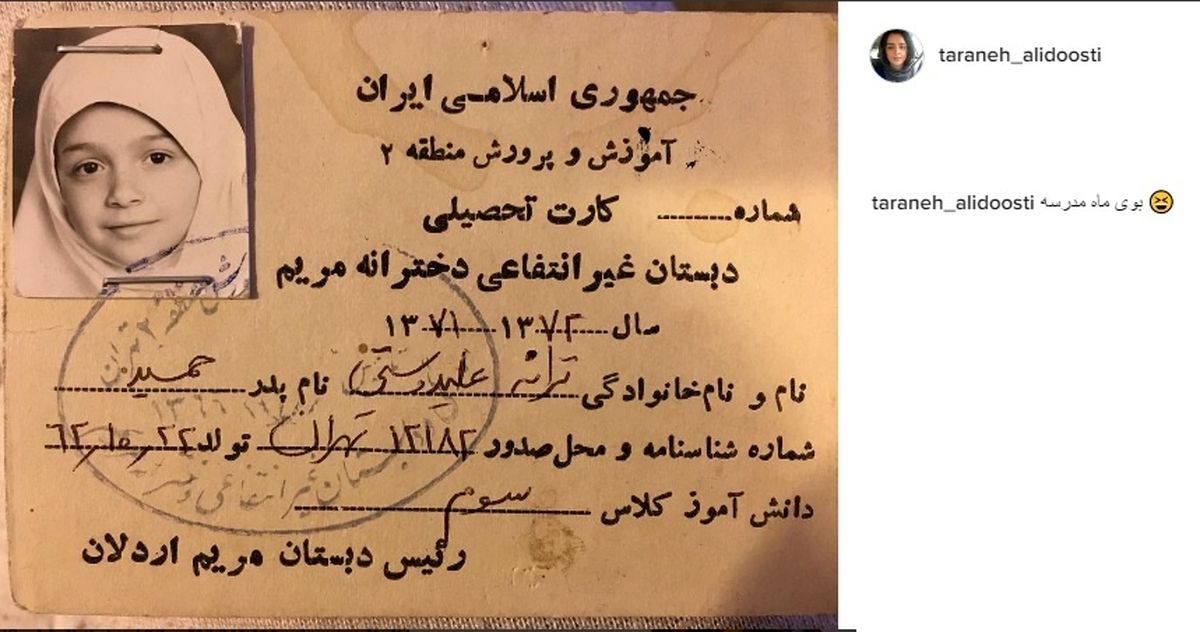 جمهوری اسلامی ایران
آموزش و پرورش منطقه ۲
شماره ........... کارت تحصیلی
دبستان غیر انتفاعی دخترانه مریم
سال ۱۳۷۲ ـ ۱۳۷۱
نام و نام‌خانوادگی ترانه علیدوستی نام پدر حمید
شماره شناسنامه و محل صدور ۱۲۱۸۲ تهران تولد ۶۲،۱۰،۲۲
دانش آموز کلاس سوم
رئیس دبستان مریم اردلان
taraneh_alidoosti
taraneh_alidoosti بوی ماه مدرسه 😆